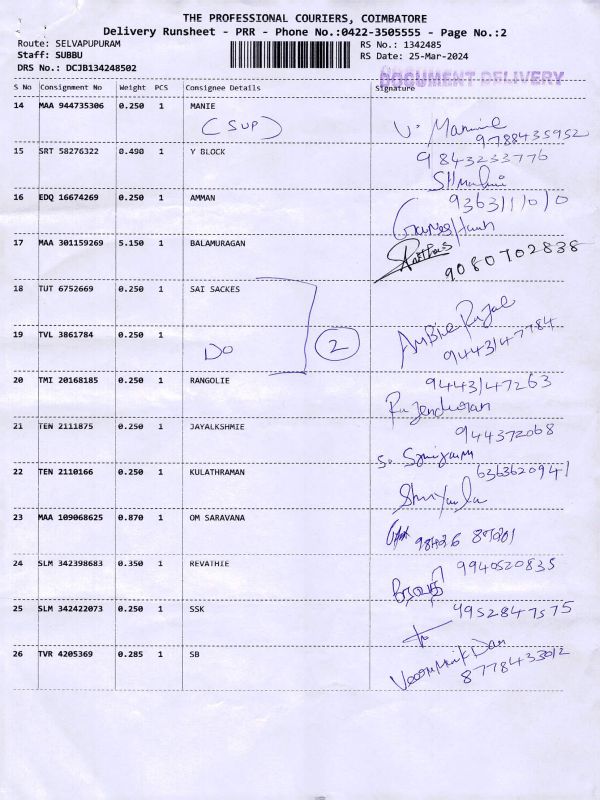 THE PROFESSIONAL COURIERS, COIMBATORE
Delivery Runsheet - PRR - Phone No.:0422-3505555 - Page No.:2
Route: SELVAPUPURAM RS No.: 1342485
Staff: SUBBU RS Date: 25-Mar-2024
DRS No.: DCJB134248502
DOCUMENT DELIVERY
S No Consignment No Weight PCS Consignee Details Signature
14 MAA 944735306 0.250 1 MANIE
(SUP)
9788435952
15 SRT 58276322 0.490 1 Y BLOCK 9843233776
16 EDQ 16674269 0.250 1 AMMAN
17 MAA 301159269 5.150 1 BALAMURAGAN
9080702838
18 TUT 6752669 0.250 1 SAI SACKES
19 TVL 3861784 0.250 1
DO 2
9443147784
20 TMI 20168185 0.250 1 RANGOLIE 9443147263
21 TEN 2111875 0.250 1 JAYALKSHMIE 944372068
22 TEN 2110166 0.250 1 KULATHRAMAN 6363620941
23 MAA 109068625 0.870 1 OM SARAVANA
24 SLM 342398683 0.350 1 REVATHIE 9940520835
ரேவதி
25 SLM 342422073 0.250 1 SSK 9952847575
26 TVR 4205369 0.285 1 SB
8778433012